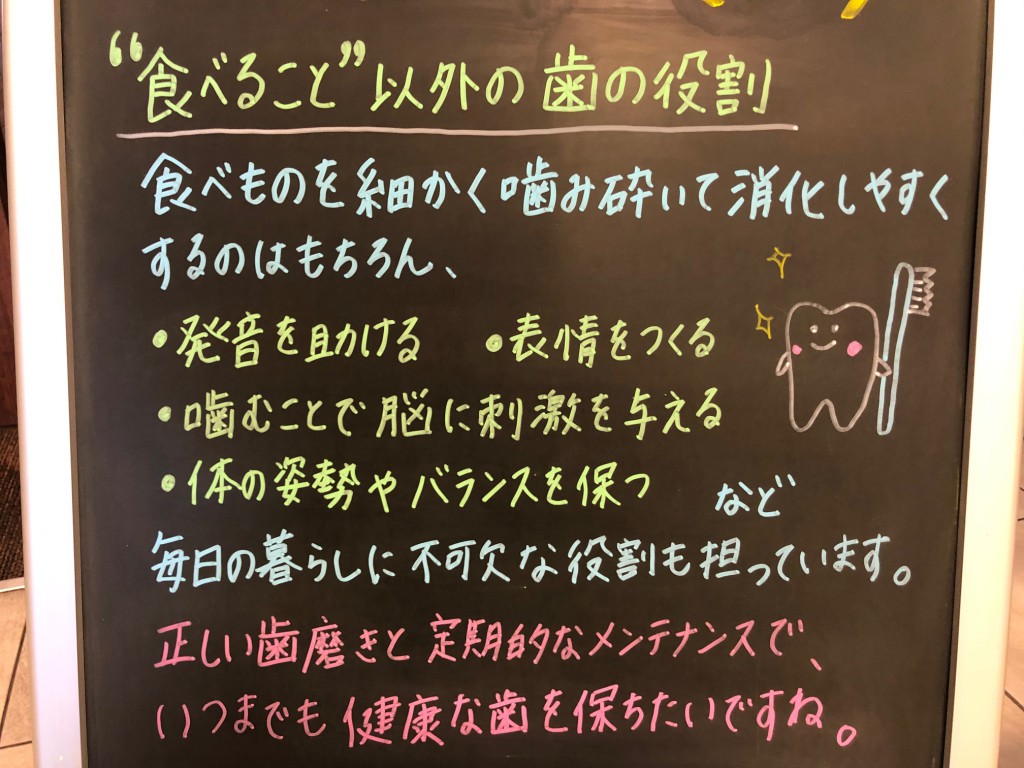 “食べること”以外の歯の役割
食べものを細かく噛み砕いて消化しやすく
するのはもちろん、
•発音を助ける •表情をつくる
•噛むことで脳に刺激を与える
•体の姿勢やバランスを保つ など
毎日の暮らしに不可欠な役割も担っています。
正しい歯磨きと定期的なメンテナンスで、
いつまでも健康な歯を保ちたいですね。